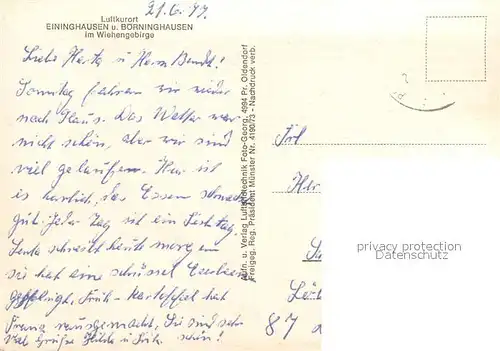 Luftkurort
EININGHAUSEN u. BÖRNINGHAUSEN
im Wiehengebirge
21.6.77
Liebe Herta u Herm Bendt!
Sonntag fahren wir wieder
nach Haus. Das Wetter war
nicht schön, aber wir sind
viel gelaufen. Hier ist
es herrlich, das Essen schmeckt
gut. Jeder Tag ist ein Festtag.
schreibt heute morgen
sie hat eine Schüssel
gepflügt, Früh-Kartoffel hat
Franz rausgemacht, Sie sind sehr
schön!
Viel Grüße Hilda u Fritz.
Aufn. u. Verlag Luftbildtechnik Foto-Georg, 4994 Pr. Oldendorf
Freigeg. Reg. Präsident Münster Nr. 4190/73 - Nachdruck verb.
87
privacy protection
Datenschutz